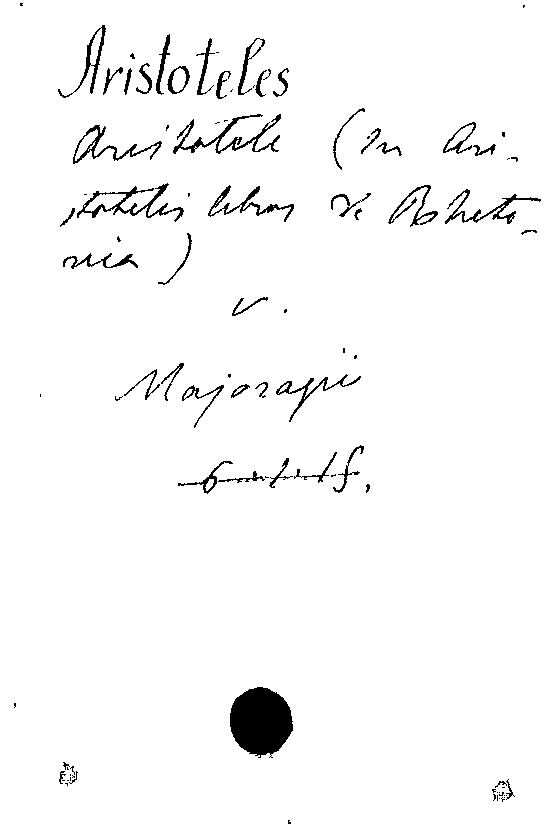 Aristoteles
Aristotele (In Ari-
stotelis libros de Rheto-
rica)
v.
Majoragii